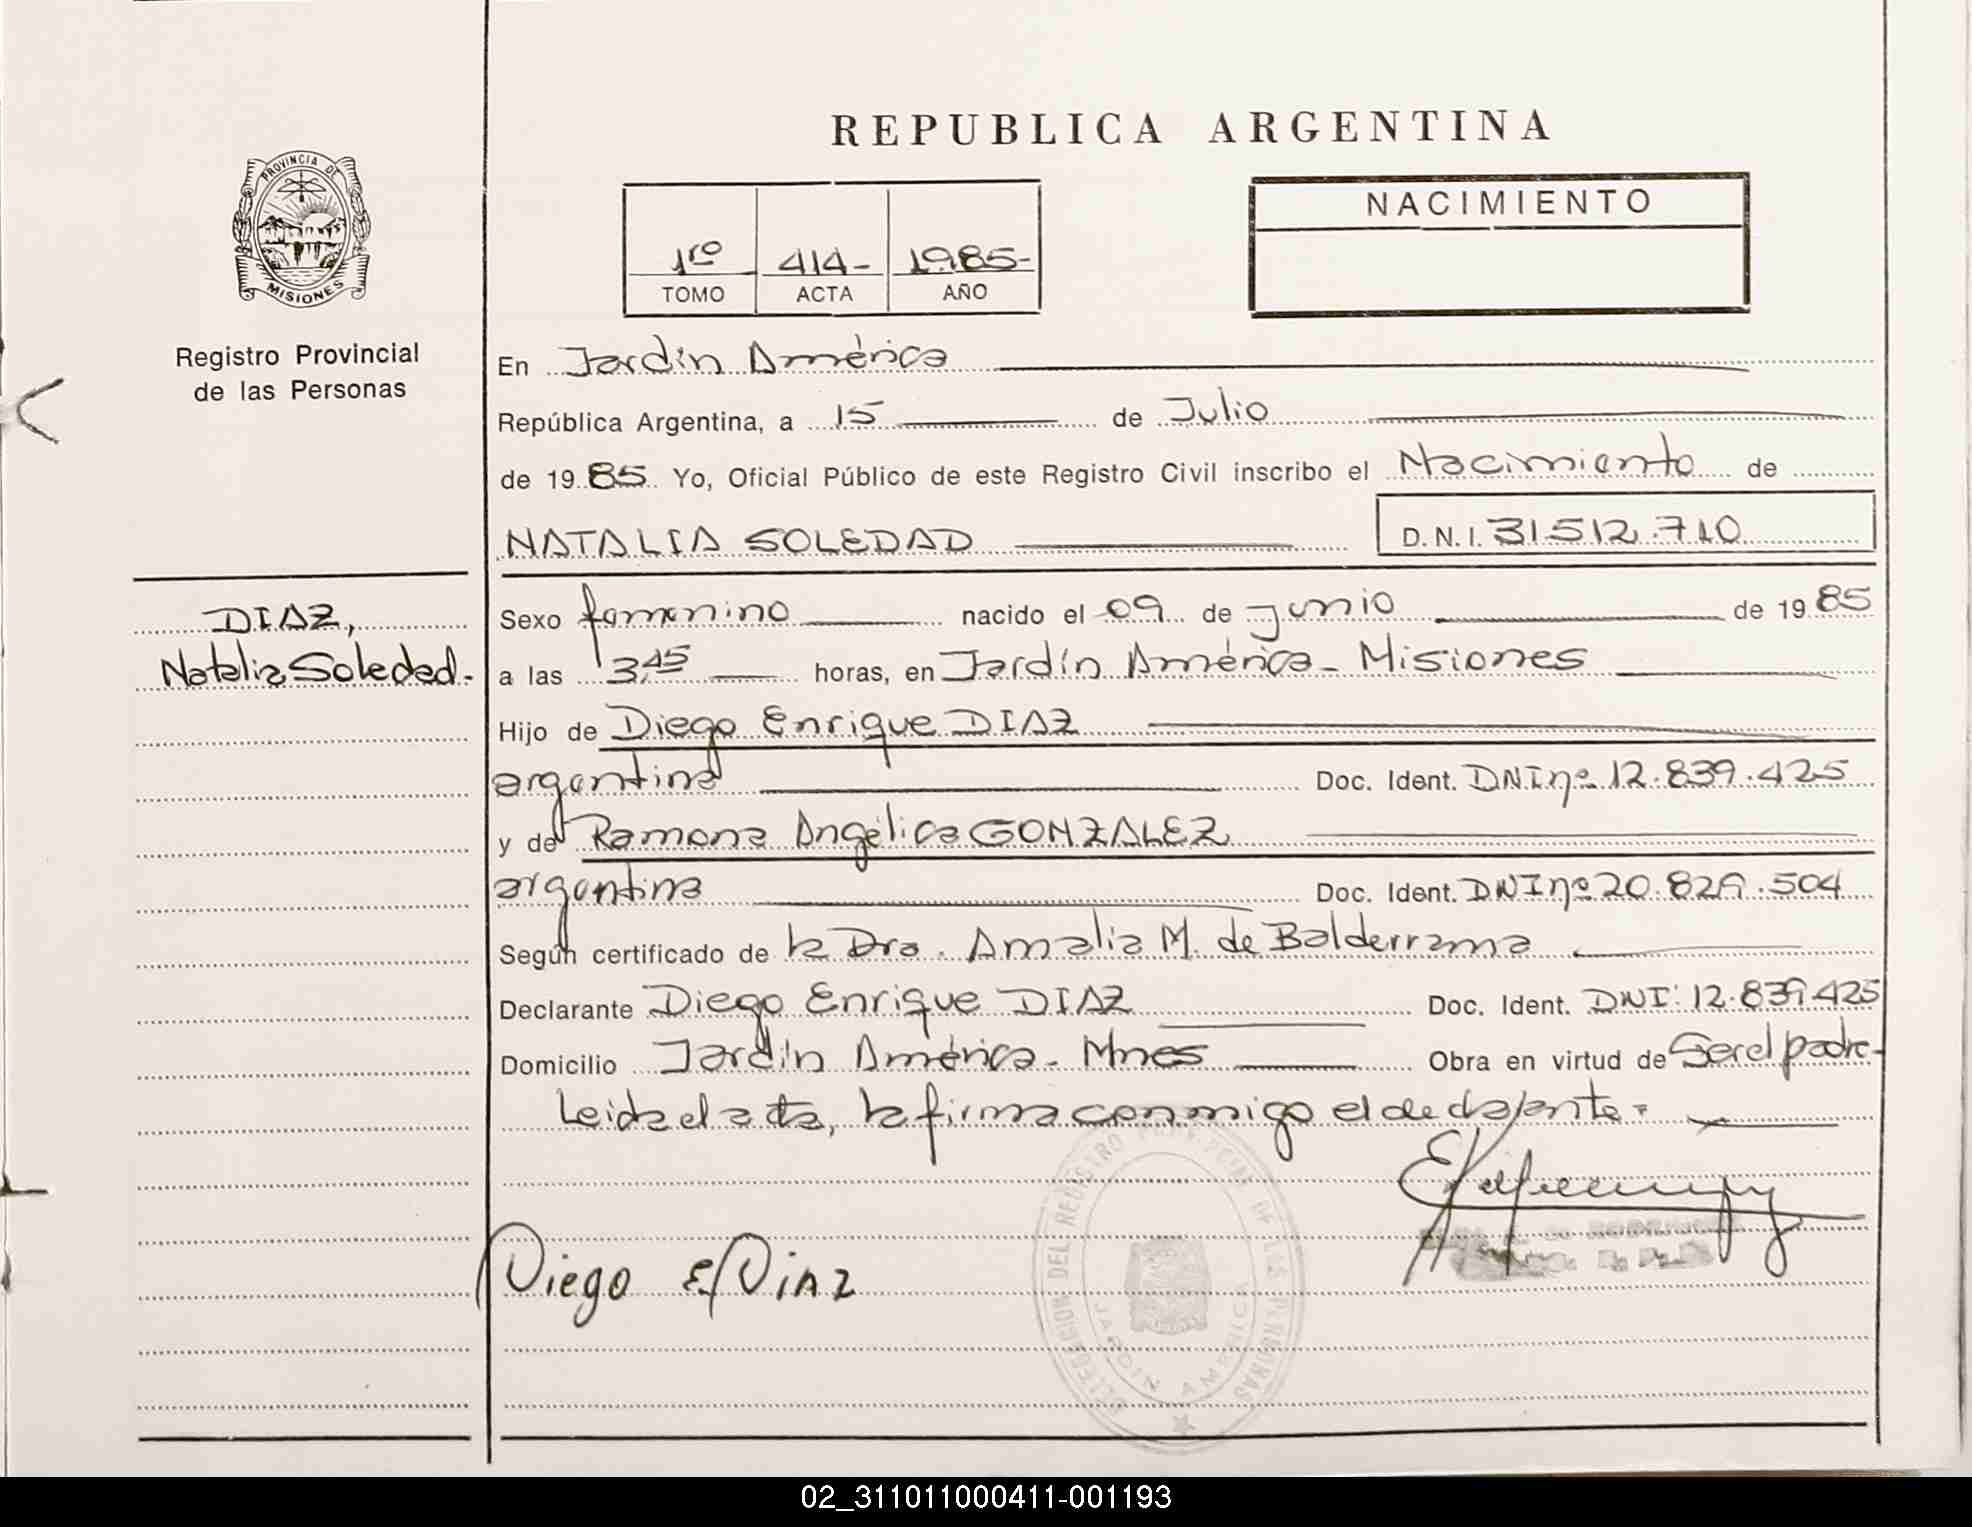 REPUBLICA ARGENTINA
PROVINCIA DE
MISIONES
Registro Provincial
de las Personas
1ro 414- 1985-
TOMO ACTA AÑO
NACIMIENTO
En Jardín América
República Argentina, a 15 de Julio
de 1985 Yo, Oficial Público de este Registro Civil inscribo el Nacimiento de
NATALIA SOLEDAD D.N.I. 31.512.710
DIAZ,
Natalia Soledad.
Sexo femenino nacido el 09 de junio de 1985
a las 3,45 horas, en Jardín América - Misiones
Hijo de Diego Enrique DIAZ
argentina Doc. Ident. DNI nº 12.839.425
y de Ramona Angélica GONZALEZ
argentina Doc. Ident. DNI nº 20.829.504
Según certificado de la Dra. Amalia M. de Balderrama
Declarante Diego Enrique DIAZ Doc. Ident. DNI: 12.839.425
Domicilio Jardín América - Mnes Obra en virtud de Ser el padre-
Leida el acta, la firma conmigo el declarante-
Diego E. Diaz
DELEGACION DEL REGISTRO PROVINCIAL DE LAS PERSONAS
JARDIN AMERICA
02_311011000411-001193